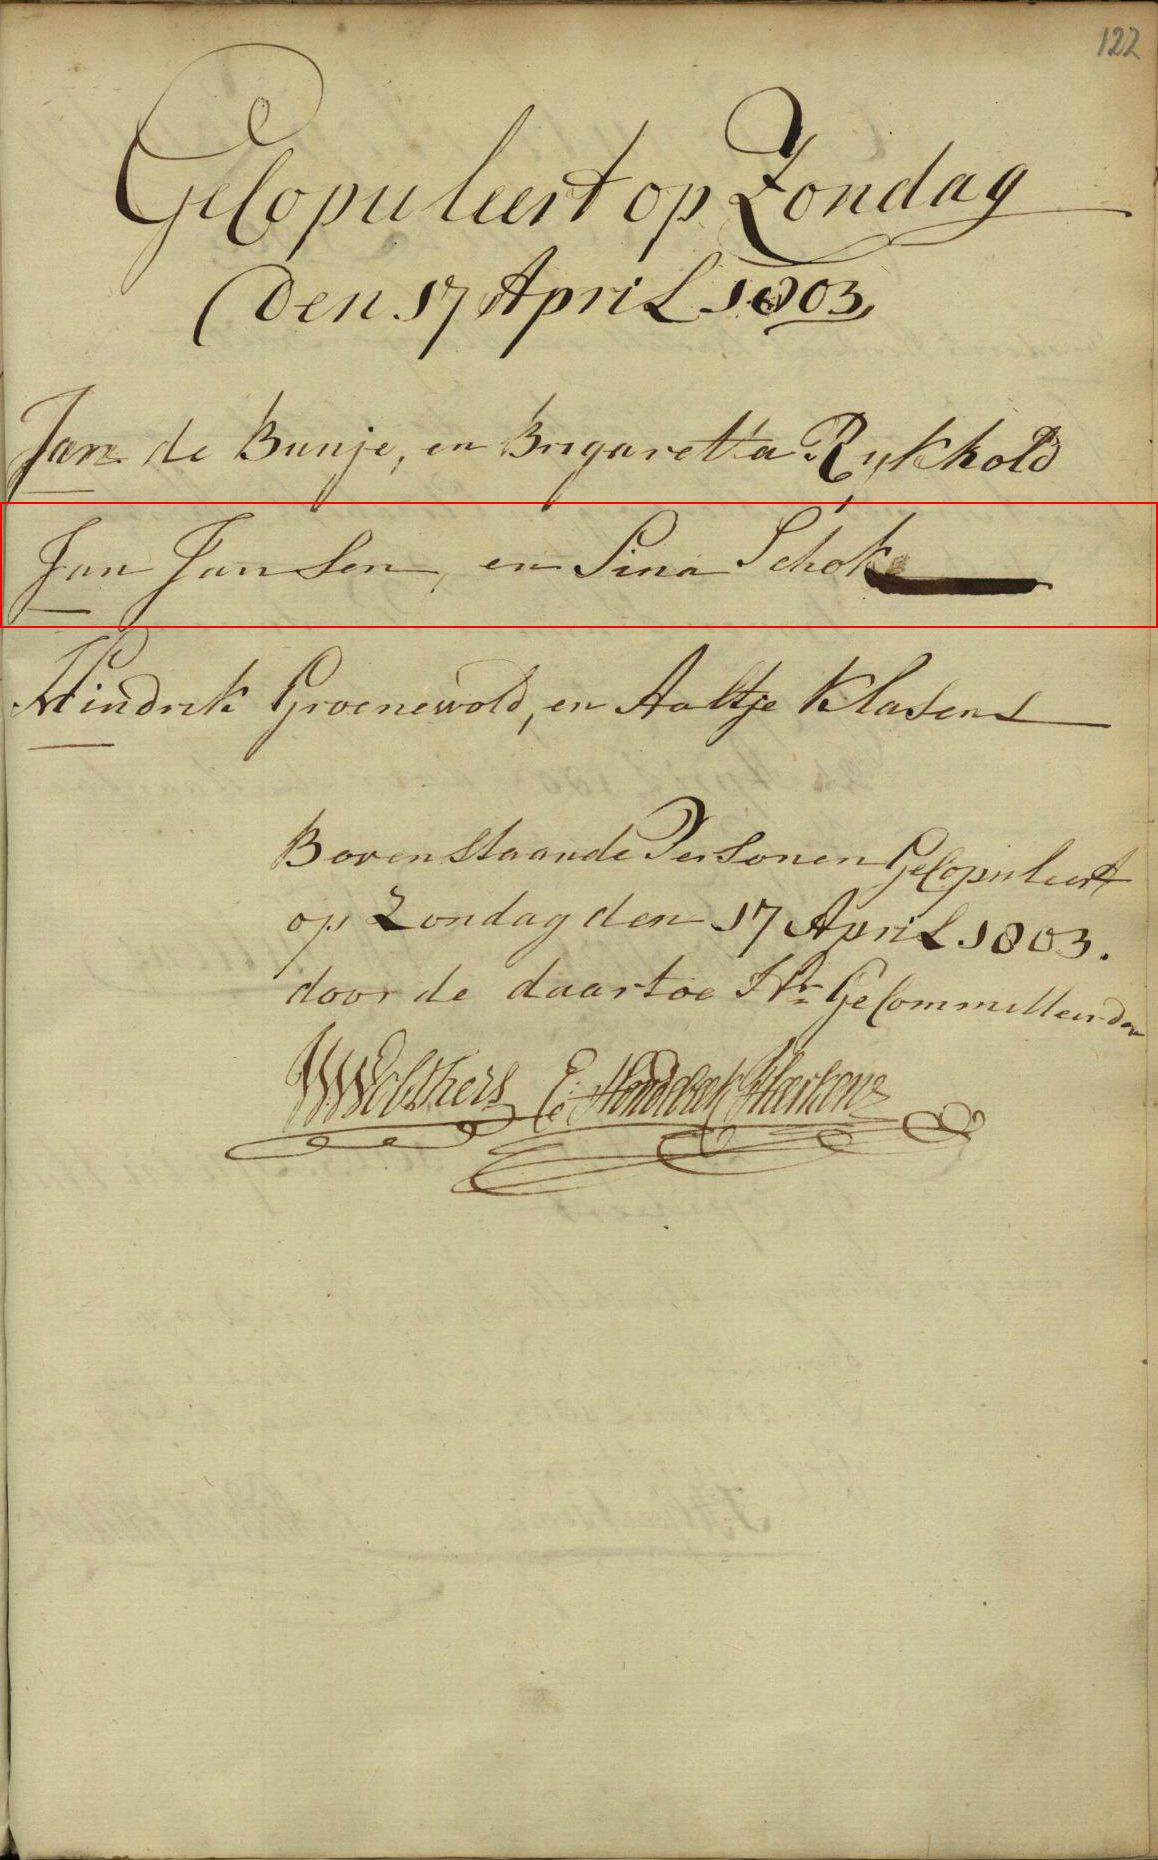 122
Gecopuleert op Zondag
den 17 April 1803,
Jan de Bunje, en Brigaretta Rykhold
Jan Jansen, en Sina Schok
Hindrik Groenewold, en Aaltje Klasens
Bovenstaande Personen Gecopuleert
op Zondag den 17 April 1803.
door de daartoe Hr. Gecommitteerden
Wolthers E: